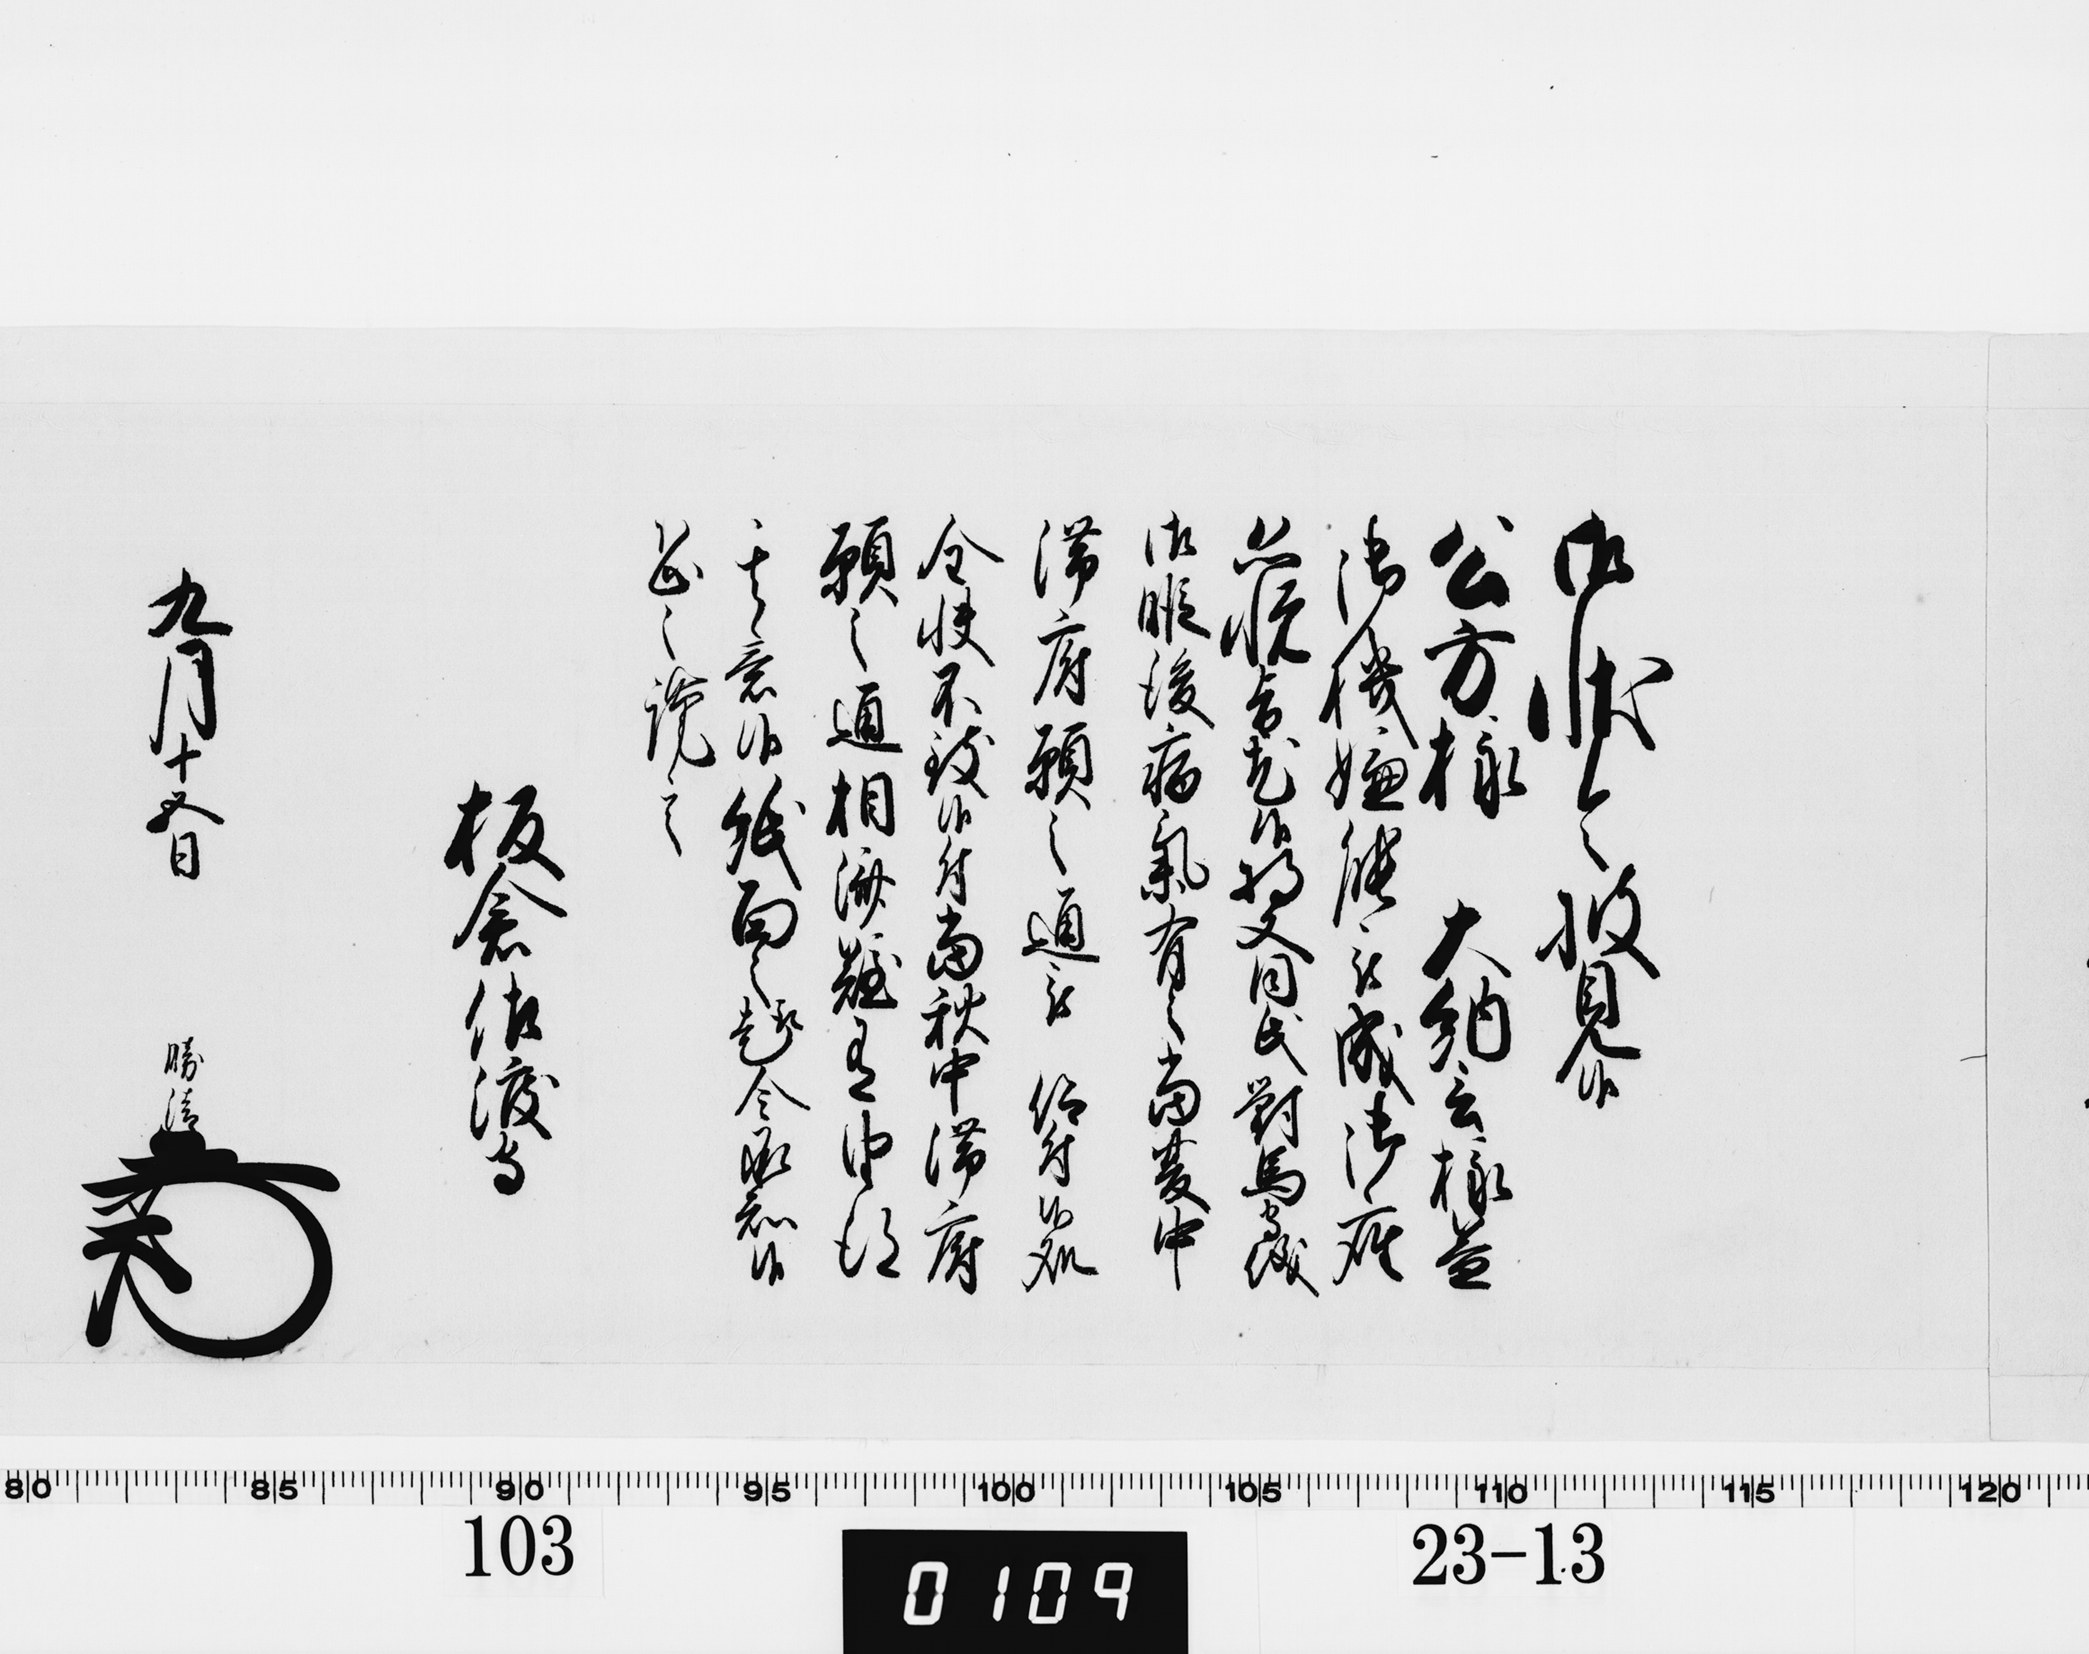 御状令披見候
公方様 大納言様益
御機嫌能被成御座
恐悦旨尤候将又同氏對馬守儀
御暇後病氣有之當夏中
滞府願之通被 仰付候處
全快不致候付當秋中滞府
願之通相濟難有由得
其意候紙面之趣令承知候
恐々謹言
板倉佐渡守
九月十五日
勝清
80 85 90 95 100 105 110 115 120
103
0109
23-13